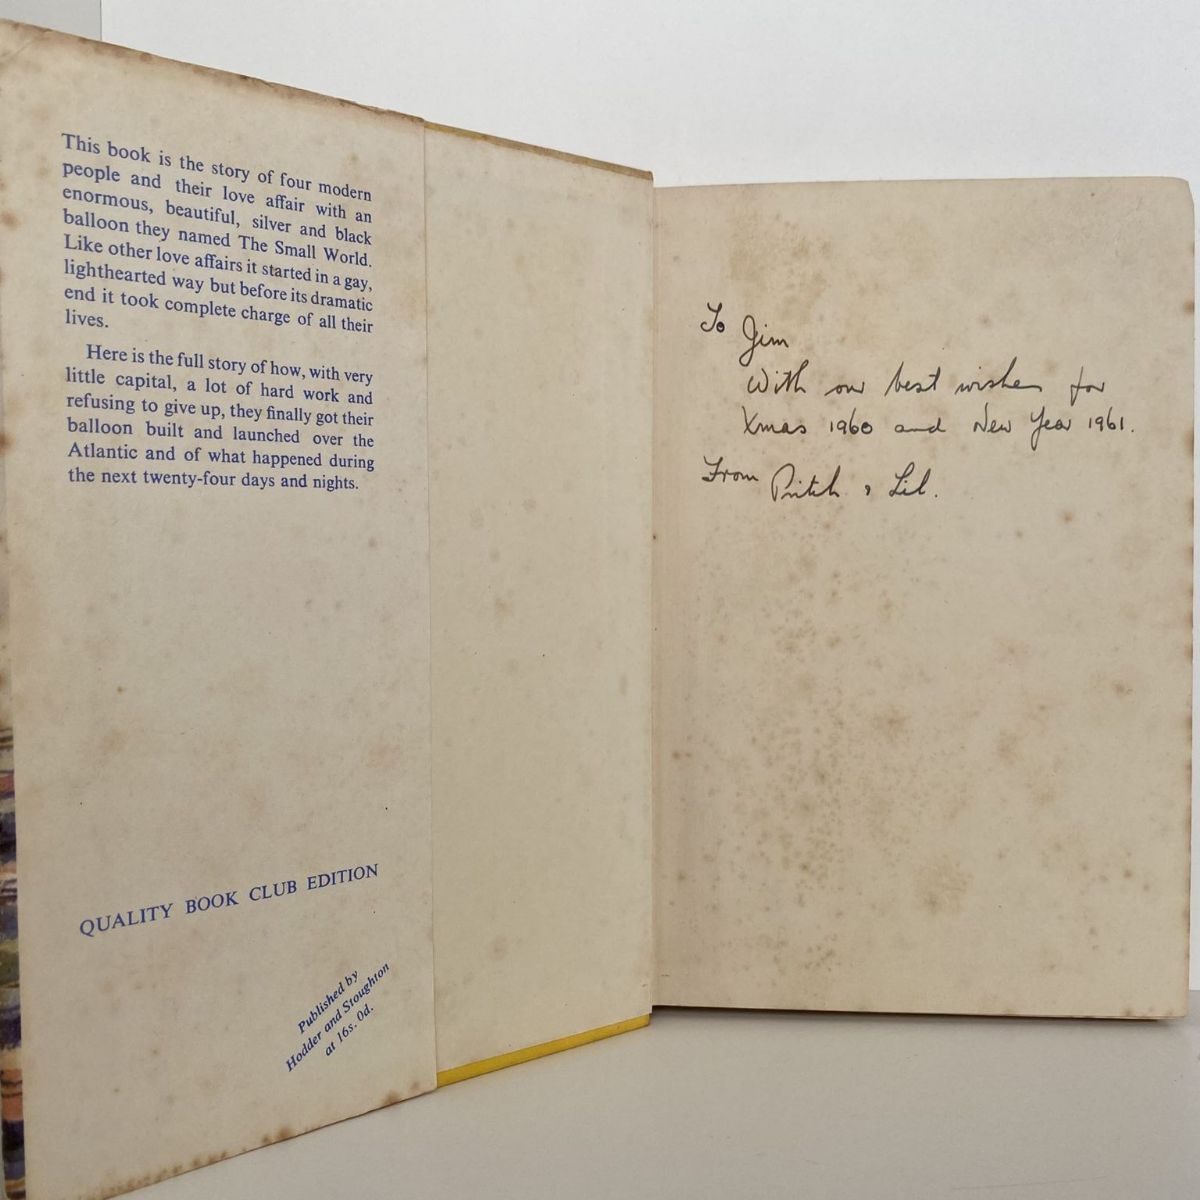 This book is the story of four modern
people and their love affair with an
enormous, beautiful, silver and black
balloon they named The Small World.
Like other love affairs it started in a gay,
lighthearted way but before its dramatic
end it took complete charge of all their
lives.
Here is the full story of how, with very
little capital, a lot of hard work and
refusing to give up, they finally got their
balloon built and launched over the
Atlantic and of what happened during
the next twenty-four days and nights.
QUALITY BOOK CLUB EDITION
Published by
Hodder and Stoughton
at 16s. 0d.
To Jim
With our best wishes for
Xmas 1960 and New Year 1961.
From Pritch & Lil.